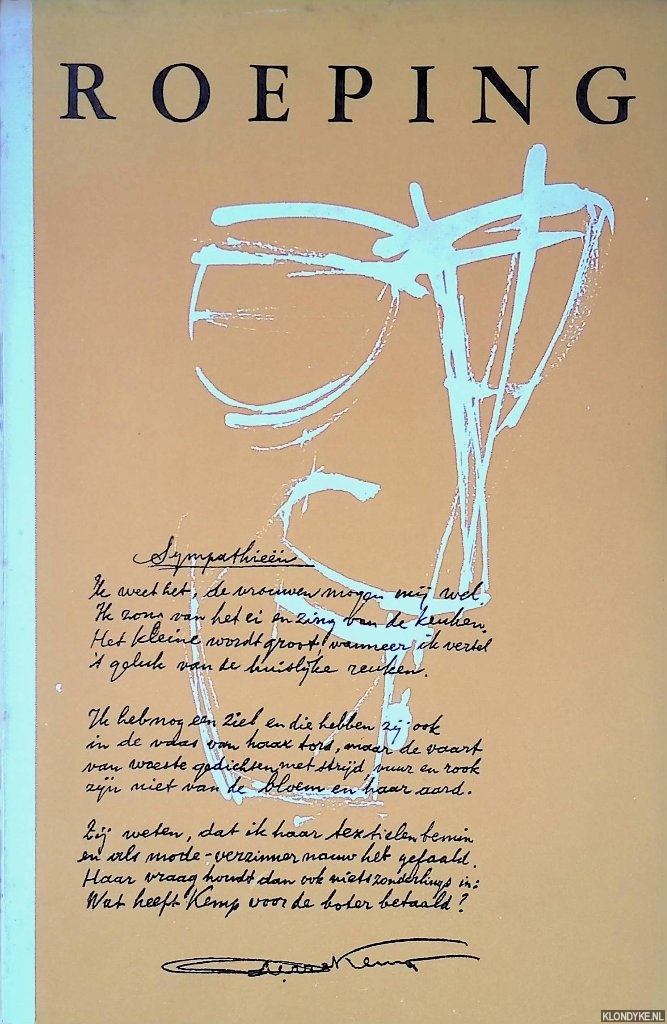 ROEPING
Sympathieën
Ik weet het, de vrouwen mogen mij wel.
Ik zong van het ei en zing van de keuken.
Het kleine wordt groot, wanneer ik vertel
't geluk van de huislijke reuken.
Ik heb nog een ziel en die hebben zij ook
in de vaas van haar tors, maar de vaart
van woeste gedichten met strijd, vuur en rook
zijn niet van de bloem en haar aard.
Zij weten, dat ik haar textielen bemin
en als mode-verzinner nauw heb gefaald.
Haar vraag houdt dan ook niets zonderlings in:
Wat heeft Kemp voor de boter betaald?
Pierre Kemp
KLONDYKE.NL